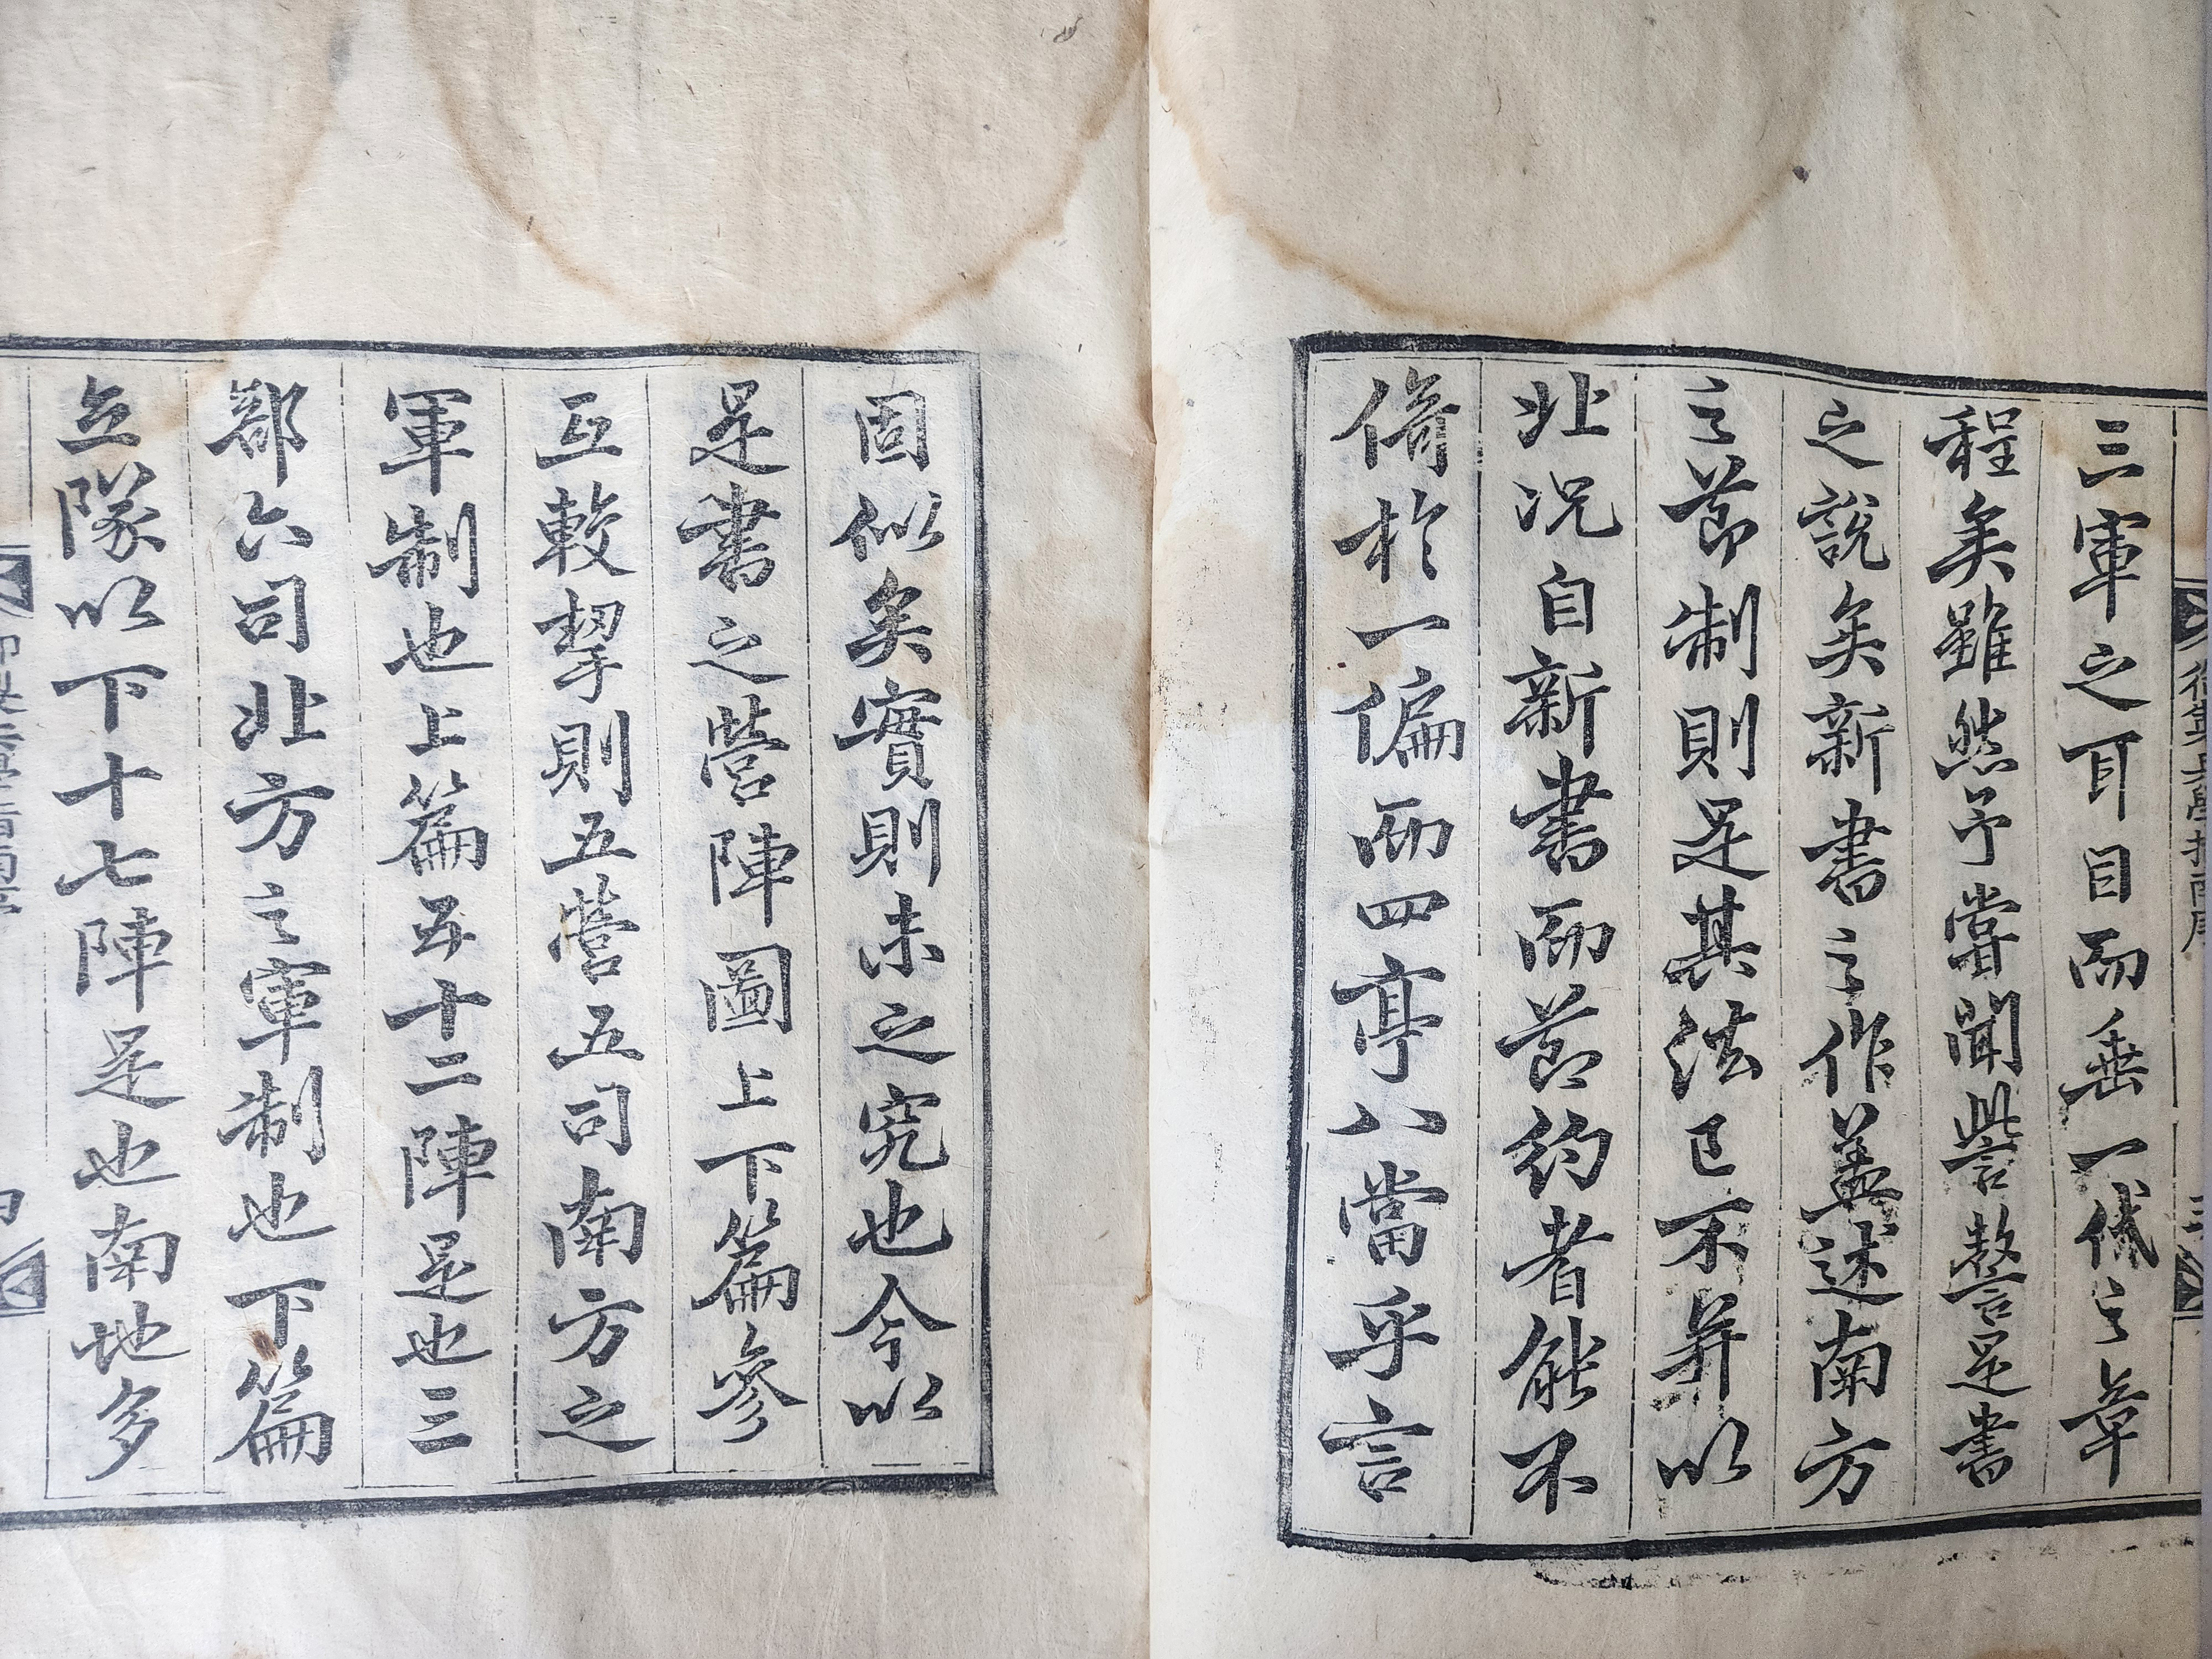 三軍之耳目而垂一代之章
程矣雖然予嘗聞訾警是書
之說矣新書之作盖述南方
之節制則是其法已不并以
北况自新書而節約者能不
倚於一偏而四亭八當乎言
固似矣實則未之究也今以
是書之營陣圖上下篇參
互較挈則五營五司南方之
軍制也上篇五十二陣是也三
部六司北方之軍制也下篇
立隊以下十七陣是也南地多